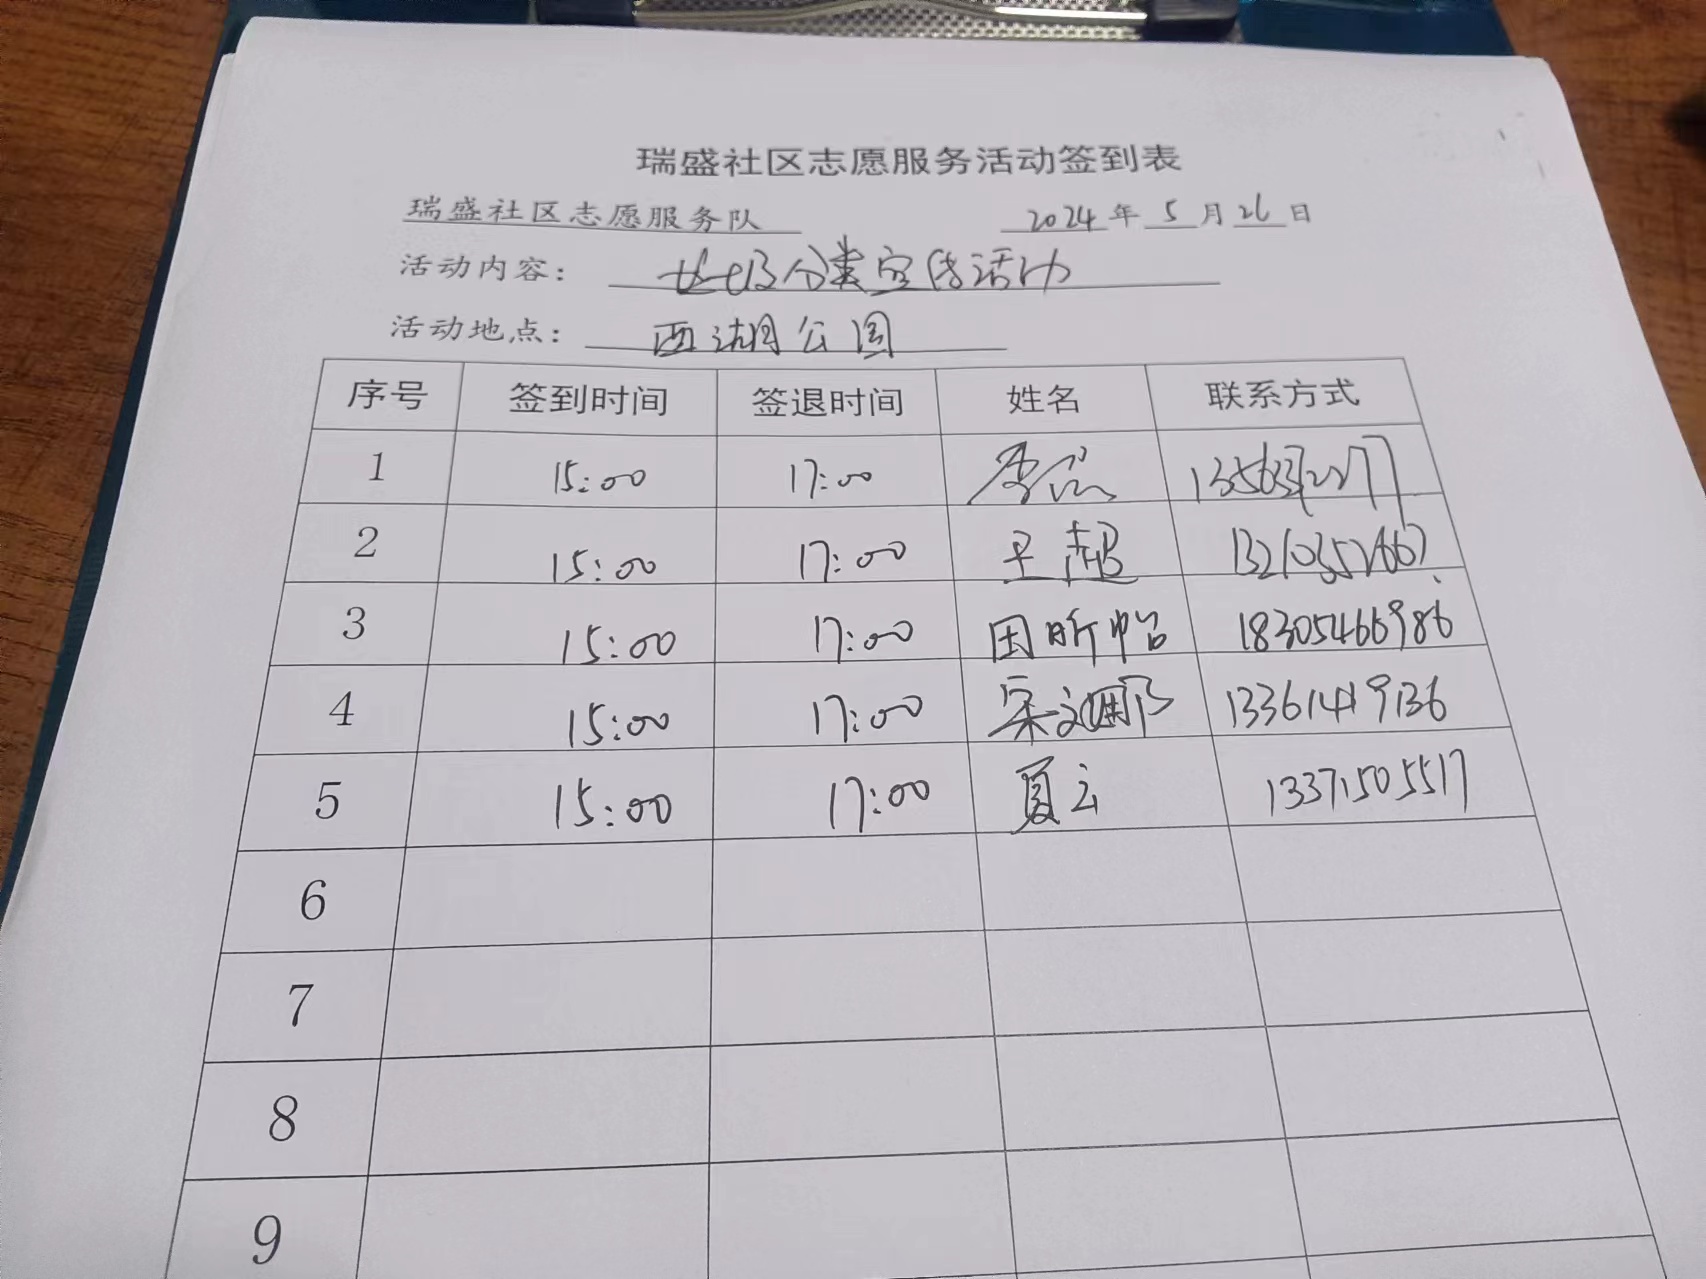 瑞盛社区志愿服务活动签到表
瑞盛社区志愿服务队 2024年5月26日
活动内容：垃圾分类宣传活动
活动地点：西湖公园
序号 签到时间 签退时间 姓名 联系方式
1 15:00 17:00 李
2 15:00 17:00 王超
3 15:00 17:00 田昕怡 18305466986
4 15:00 17:00 宋文 13361419136
5 15:00 17:00 夏云 13371505517
6
7
8
9